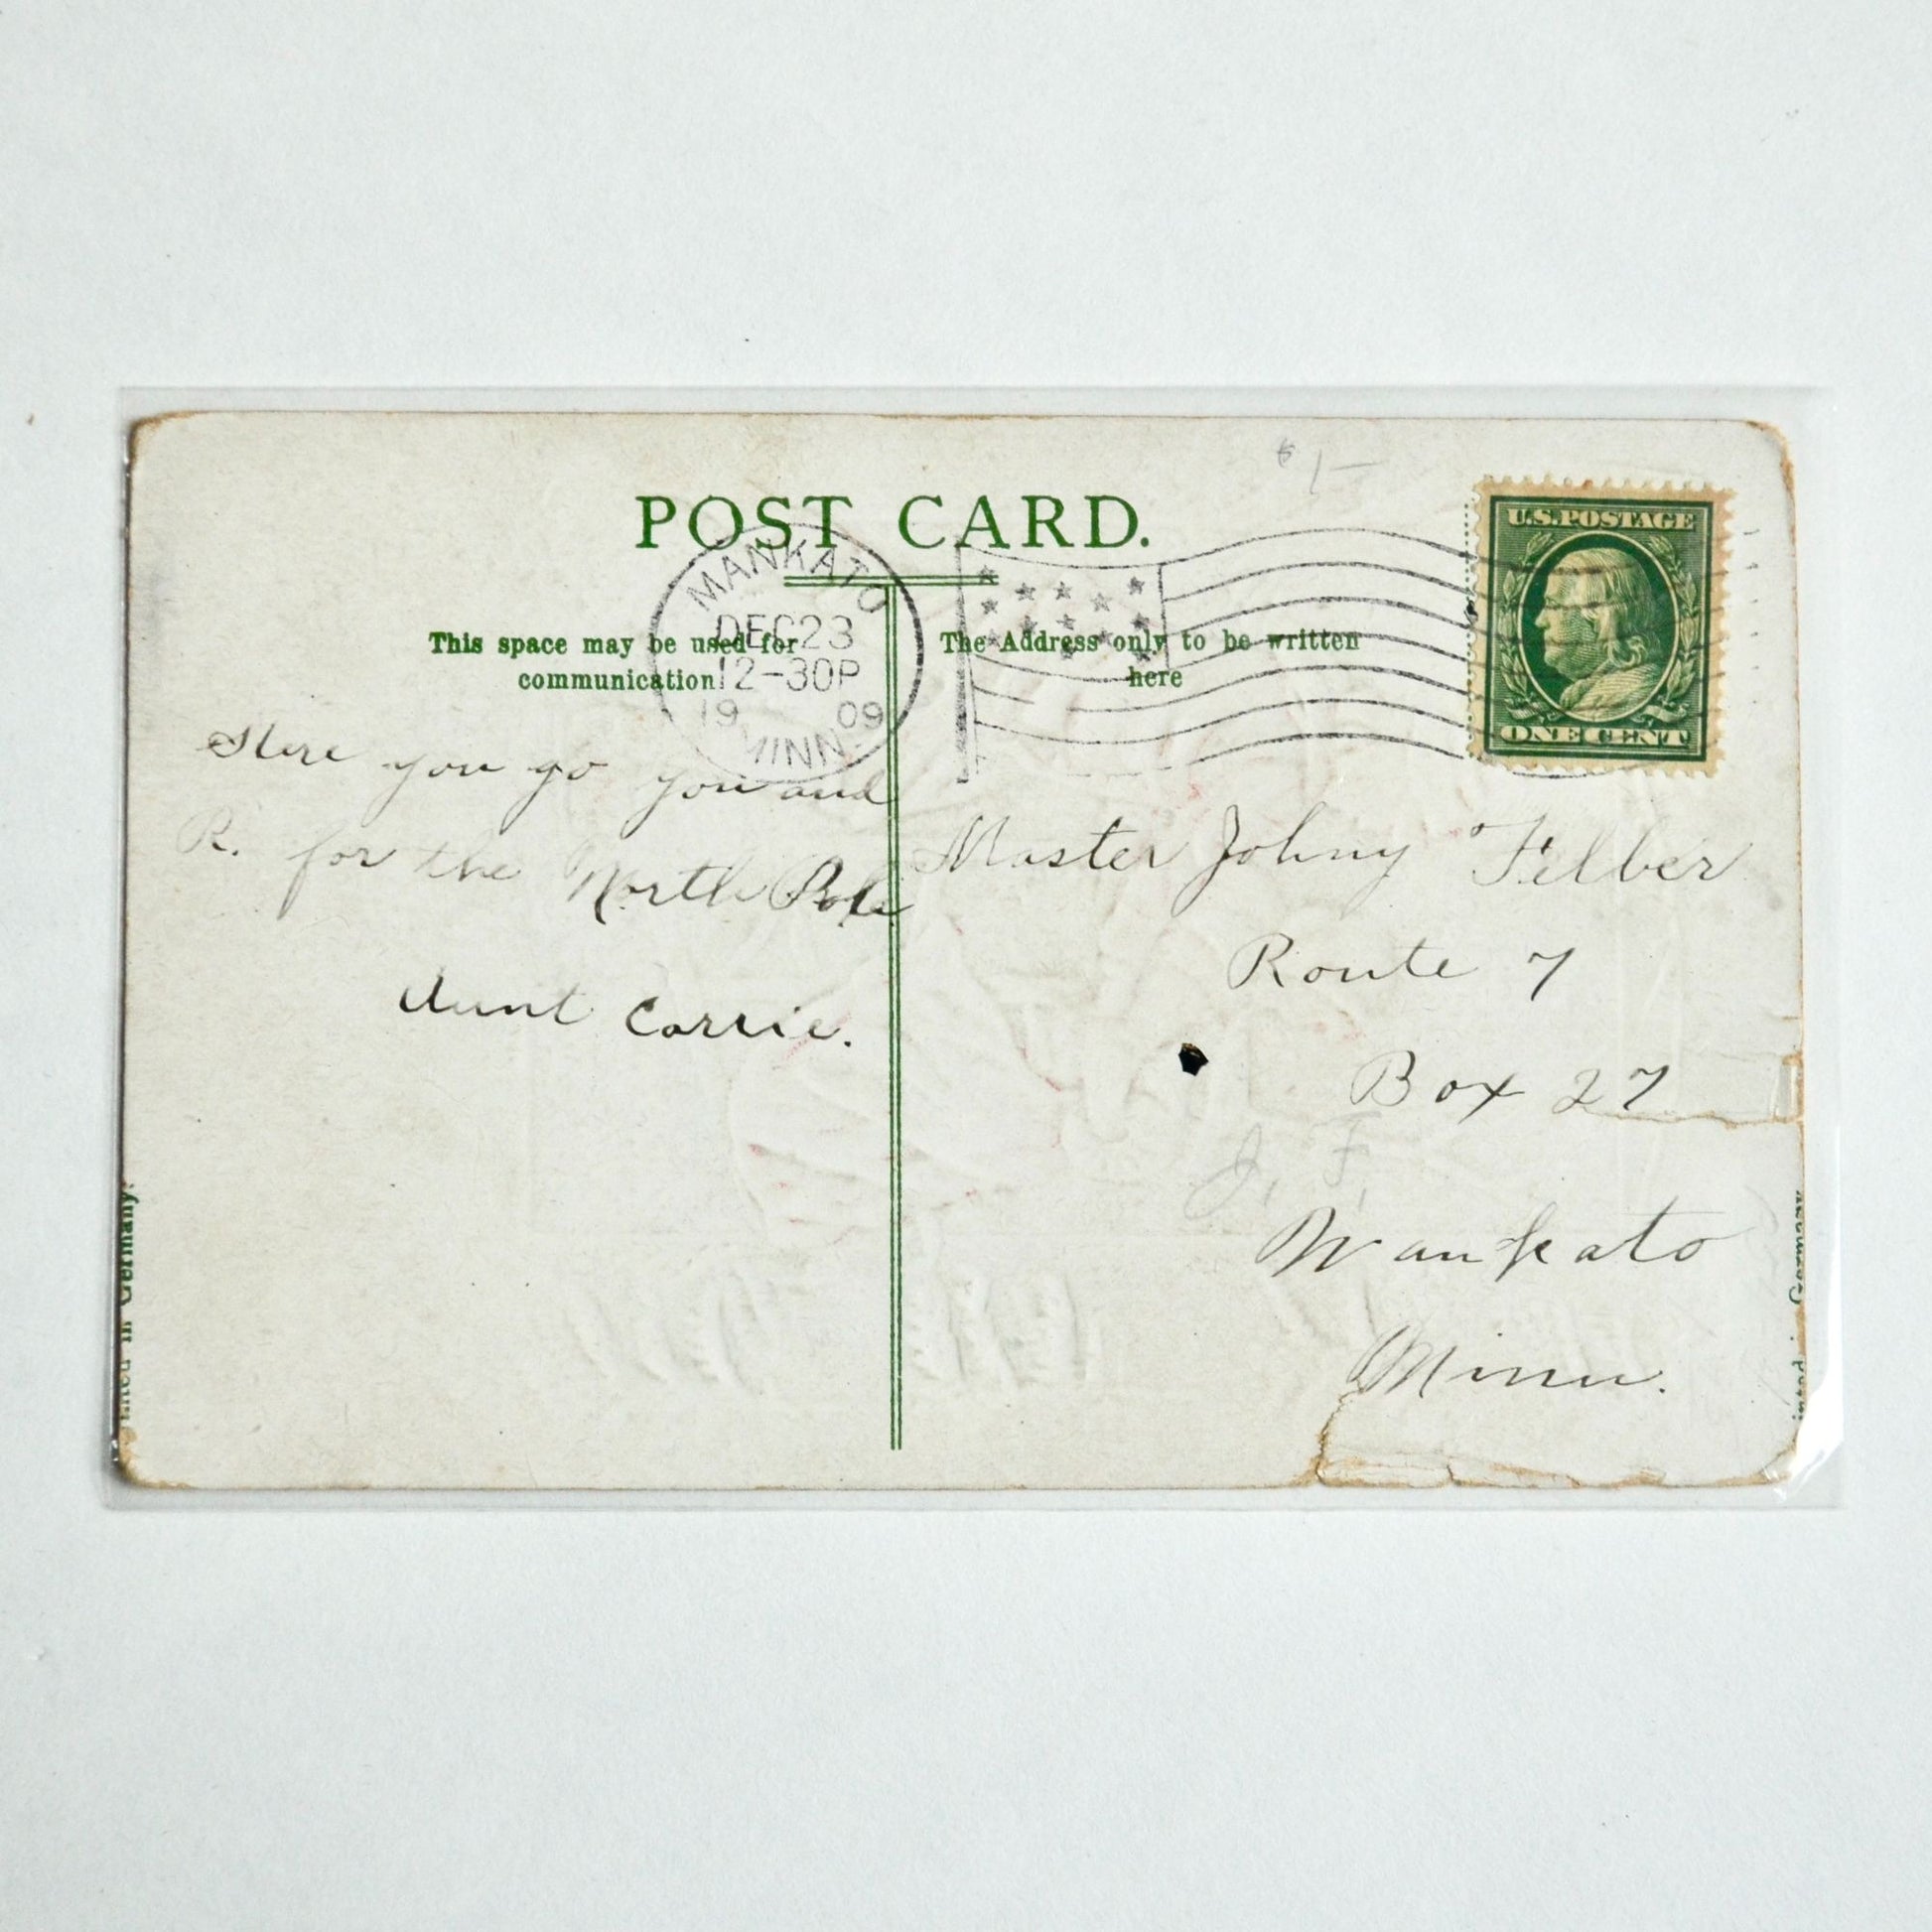 $1-
POST CARD.
U.S. POSTAGE
ONE CENT
MANKATO
DEC 23
12-30P
19 09
MINN.
This space may be used for
communication
The Address only to be written
here
Here you go you and
R. for the North Pole
Aunt Carrie.
Master Johny Felber
Route 7
Box 27
J. F.
Mankato
Minn.
inted in Germany.
inted in Germany